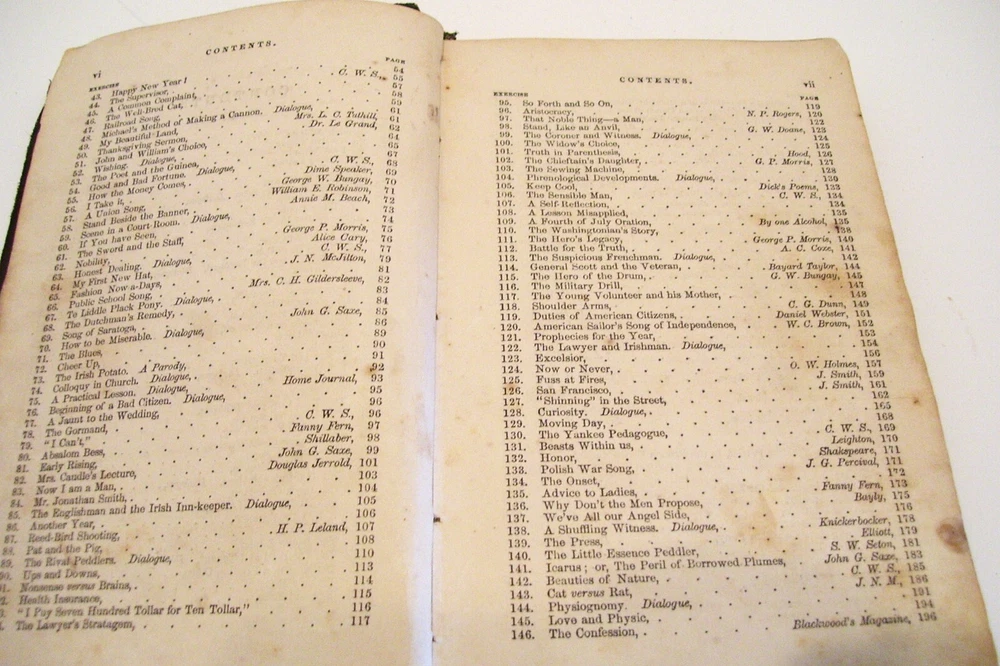 vi
CONTENTS.
EXERCISE PAGE
43. Happy New Year! 54
44. The Supervisor, C. W. S., 55
45. A Common Complaint, 57
46. The Well-Bred Cat, 58
47. Railroad Song, 59
48. Michael's Method of Making a Cannon. Dialogue, 61
49. My Beautiful Land, Mrs. L. C. Tuthill, 61
50. Thanksgiving Sermon, Dr. Le Grand, 62
51. John and William's Choice, 64
52. Wishing. Dialogue, 65
53. The Poet and the Guinea, 67
54. Good and Bad Fortune. Dialogue, C. W. S., 68
55. How the Money Comes, Dime Speaker, 69
56. I Take it, George W. Bungay, 70
57. A Union Song, William E. Robinson, 71
58. Stand Beside the Banner, Annie M. Beach, 72
59. Scene in a Court-Room. Dialogue, 73
60. If You have Seen, 74
61. The Sword and the Staff, George P. Morris, 75
62. Nobility, Alice Cary, 76
63. Honest Dealing. Dialogue, C. W. S., 77
64. My First New Hat, J. N. McJilton, 79
65. Fashion Now-a-Days, 81
66. Public School Song, Mrs. C. H. Gildersleeve, 82
67. To Liddle Plack Pony. Dialogue, 83
68. The Dutchman's Remedy, 84
69. Song of Saratoga, John G. Saxe, 85
70. How to be Miserable. Dialogue, 86
71. The Blues, 89
72. Cheer Up, 90
73. The Irish Potato. A Parody, 91
74. Colloquy in Church. Dialogue, 92
75. A Practical Lesson. Dialogue, Home Journal, 93
76. Beginning of a Bad Citizen. Dialogue, 95
77. A Jaunt to the Wedding, 96
78. The Gormand, C. W. S., 96
79. "I Can't," Fanny Fern, 97
80. Absalom Bess, Shillaber, 98
81. Early Rising, John G. Saxe, 99
82. Mrs. Caudle's Lecture, Douglas Jerrold, 101
83. Now I am a Man, 103
84. Mr. Jonathan Smith, 104
85. The Englishman and the Irish Inn-keeper. Dialogue, 105
86. Another Year, 106
87. Reed-Bird Shooting, H. P. Leland, 107
88. Pat and the Pig, 108
89. The Rival Peddlers. Dialogue, 110
90. Ups and Downs, 113
91. Nonsense versus Brains, 114
92. Health Insurance, 115
"I Pay Seven Hundred Tollar for Ten Tollar," 116
The Lawyer's Stratagem, 117
CONTENTS.
vii
EXERCISE PAGE
95. So Forth and So On, 119
96. Aristocracy, N. P. Rogers, 120
97. That Noble Thing—a Man, 122
98. Stand, Like an Anvil, G. W. Doane, 123
99. The Coroner and Witness. Dialogue, 124
100. The Widow's Choice, 125
101. Truth in Parenthesis, Hood, 126
102. The Chieftain's Daughter, G. P. Morris, 127
103. The Sewing Machine, 128
104. Phrenological Developments. Dialogue, 130
105. Keep Cool, Dick's Poems, 133
106. The Sensible Man, C. W. S., 134
107. A Self-Reflection, 134
108. A Lesson Misapplied, 135
109. A Fourth of July Oration, By one Alcohol, 135
110. The Washingtonian's Story, 138
111. The Hero's Legacy, George P. Morris, 140
112. Battle for the Truth, A. C. Coxe, 141
113. The Suspicious Frenchman. Dialogue, 142
114. General Scott and the Veteran, Bayard Taylor, 144
115. The Hero of the Drum, G. W. Bungay, 145
116. The Military Drill, 147
117. The Young Volunteer and his Mother, 148
118. Shoulder Arms, C. G. Dunn, 149
119. Duties of American Citizens, Daniel Webster, 151
120. American Sailor's Song of Independence, W. C. Brown, 152
121. Prophecies for the Year, 153
122. The Lawyer and Irishman. Dialogue, 154
123. Excelsior, 156
124. Now or Never, O. W. Holmes, 157
125. Fuss at Fires, J. Smith, 159
126. San Francisco, J. Smith, 161
127. "Shinning" in the Street, 162
128. Curiosity. Dialogue, 165
129. Moving Day, 168
130. The Yankee Pedagogue, C. W. S., 169
131. Beasts Within us, Leighton, 170
132. Honor, Shakspeare, 171
133. Polish War Song, J. G. Percival, 171
134. The Onset, 172
135. Advice to Ladies, Fanny Fern, 173
136. Why Don't the Men Propose, Bayly, 175
137. We've All our Angel Side, 176
138. A Shuffling Witness. Dialogue, Knickerbocker, 178
139. The Press, Elliott, 179
140. The Little Essence Peddler, S. W. Seton, 181
141. Icarus; or, The Peril of Borrowed Plumes, John G. Saxe, 183
142. Beauties of Nature, C. W. S., 185
143. Cat versus Rat, J. N. M., 186
144. Physiognomy. Dialogue, 191
145. Love and Physic, 194
146. The Confession, Blackwood's Magazine, 196